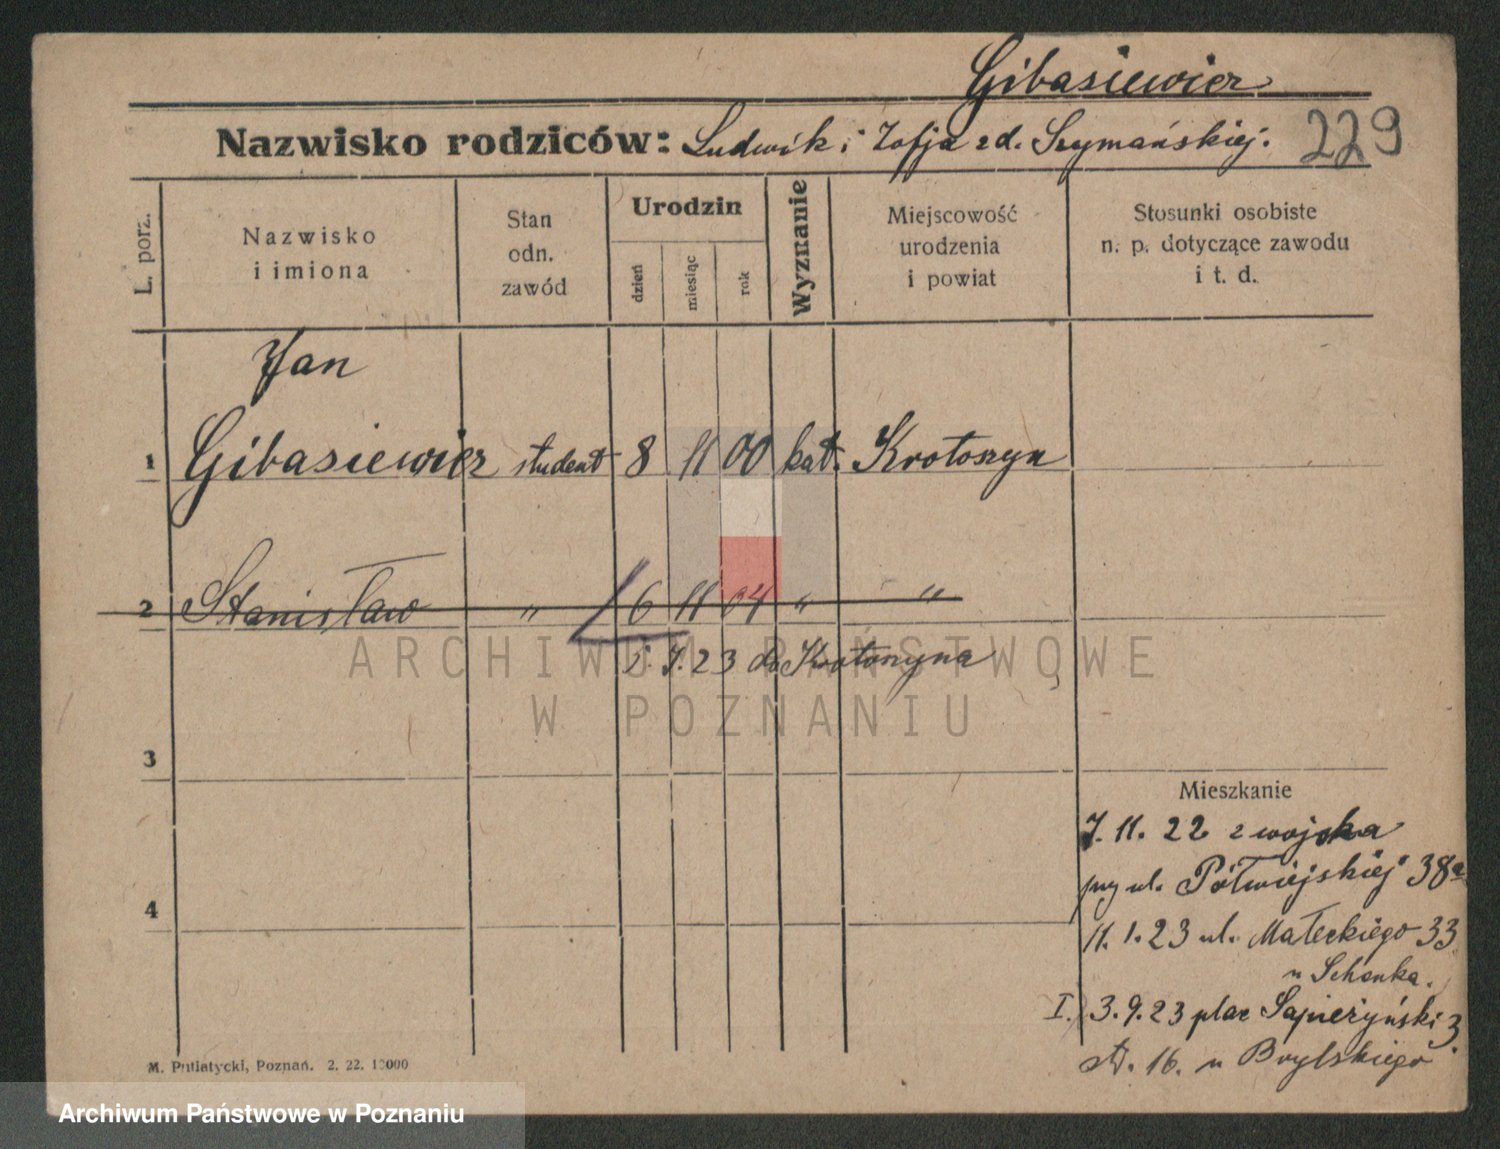 Gibasiewicz
Nazwisko rodziców: Ludwik i Zofja z d. Szymańskiej. 229
L. porz.
Nazwisko
i imiona
Stan
odn.
zawód
Urodzin
dzień
miesiąc
rok
Wyznanie
Miejscowość
urodzenia
i powiat
Stosunki osobiste
n. p. dotyczące zawodu
i t. d.
Jan
1 Gibasiewicz student 8 11 00 kat. Krotoszyn
2 Stanisław " 6 11 04 " "
7. 23 do Krotoszyna
ARCHIWUM PAŃSTWOWE
W POZNANIU
3
Mieszkanie
7. 11. 22 z wojska
przy ul. Półwiejskiej 38a
4
11. 1. 23 ul. Małeckiego 33
u Schenka.
I. 3. 9. 23 plac Sapieżyński 3
A. 16. u Brylskiego
M. Putiatycki, Poznań. 2. 22. 10000
Archiwum Państwowe w Poznaniu